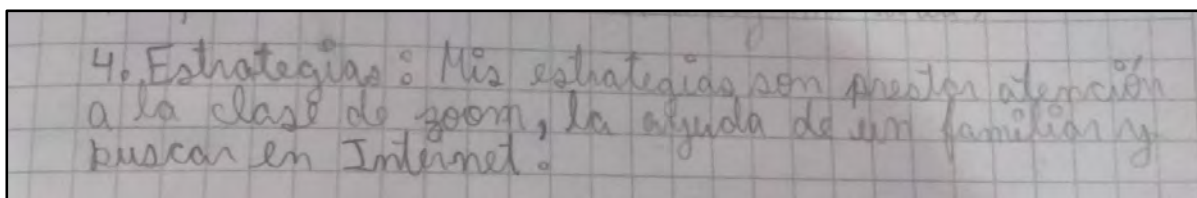 4. Estrategias: Mis estrategias son prestar atención
a la clase de zoom, la ayuda de un familiar y
buscar en Internet.